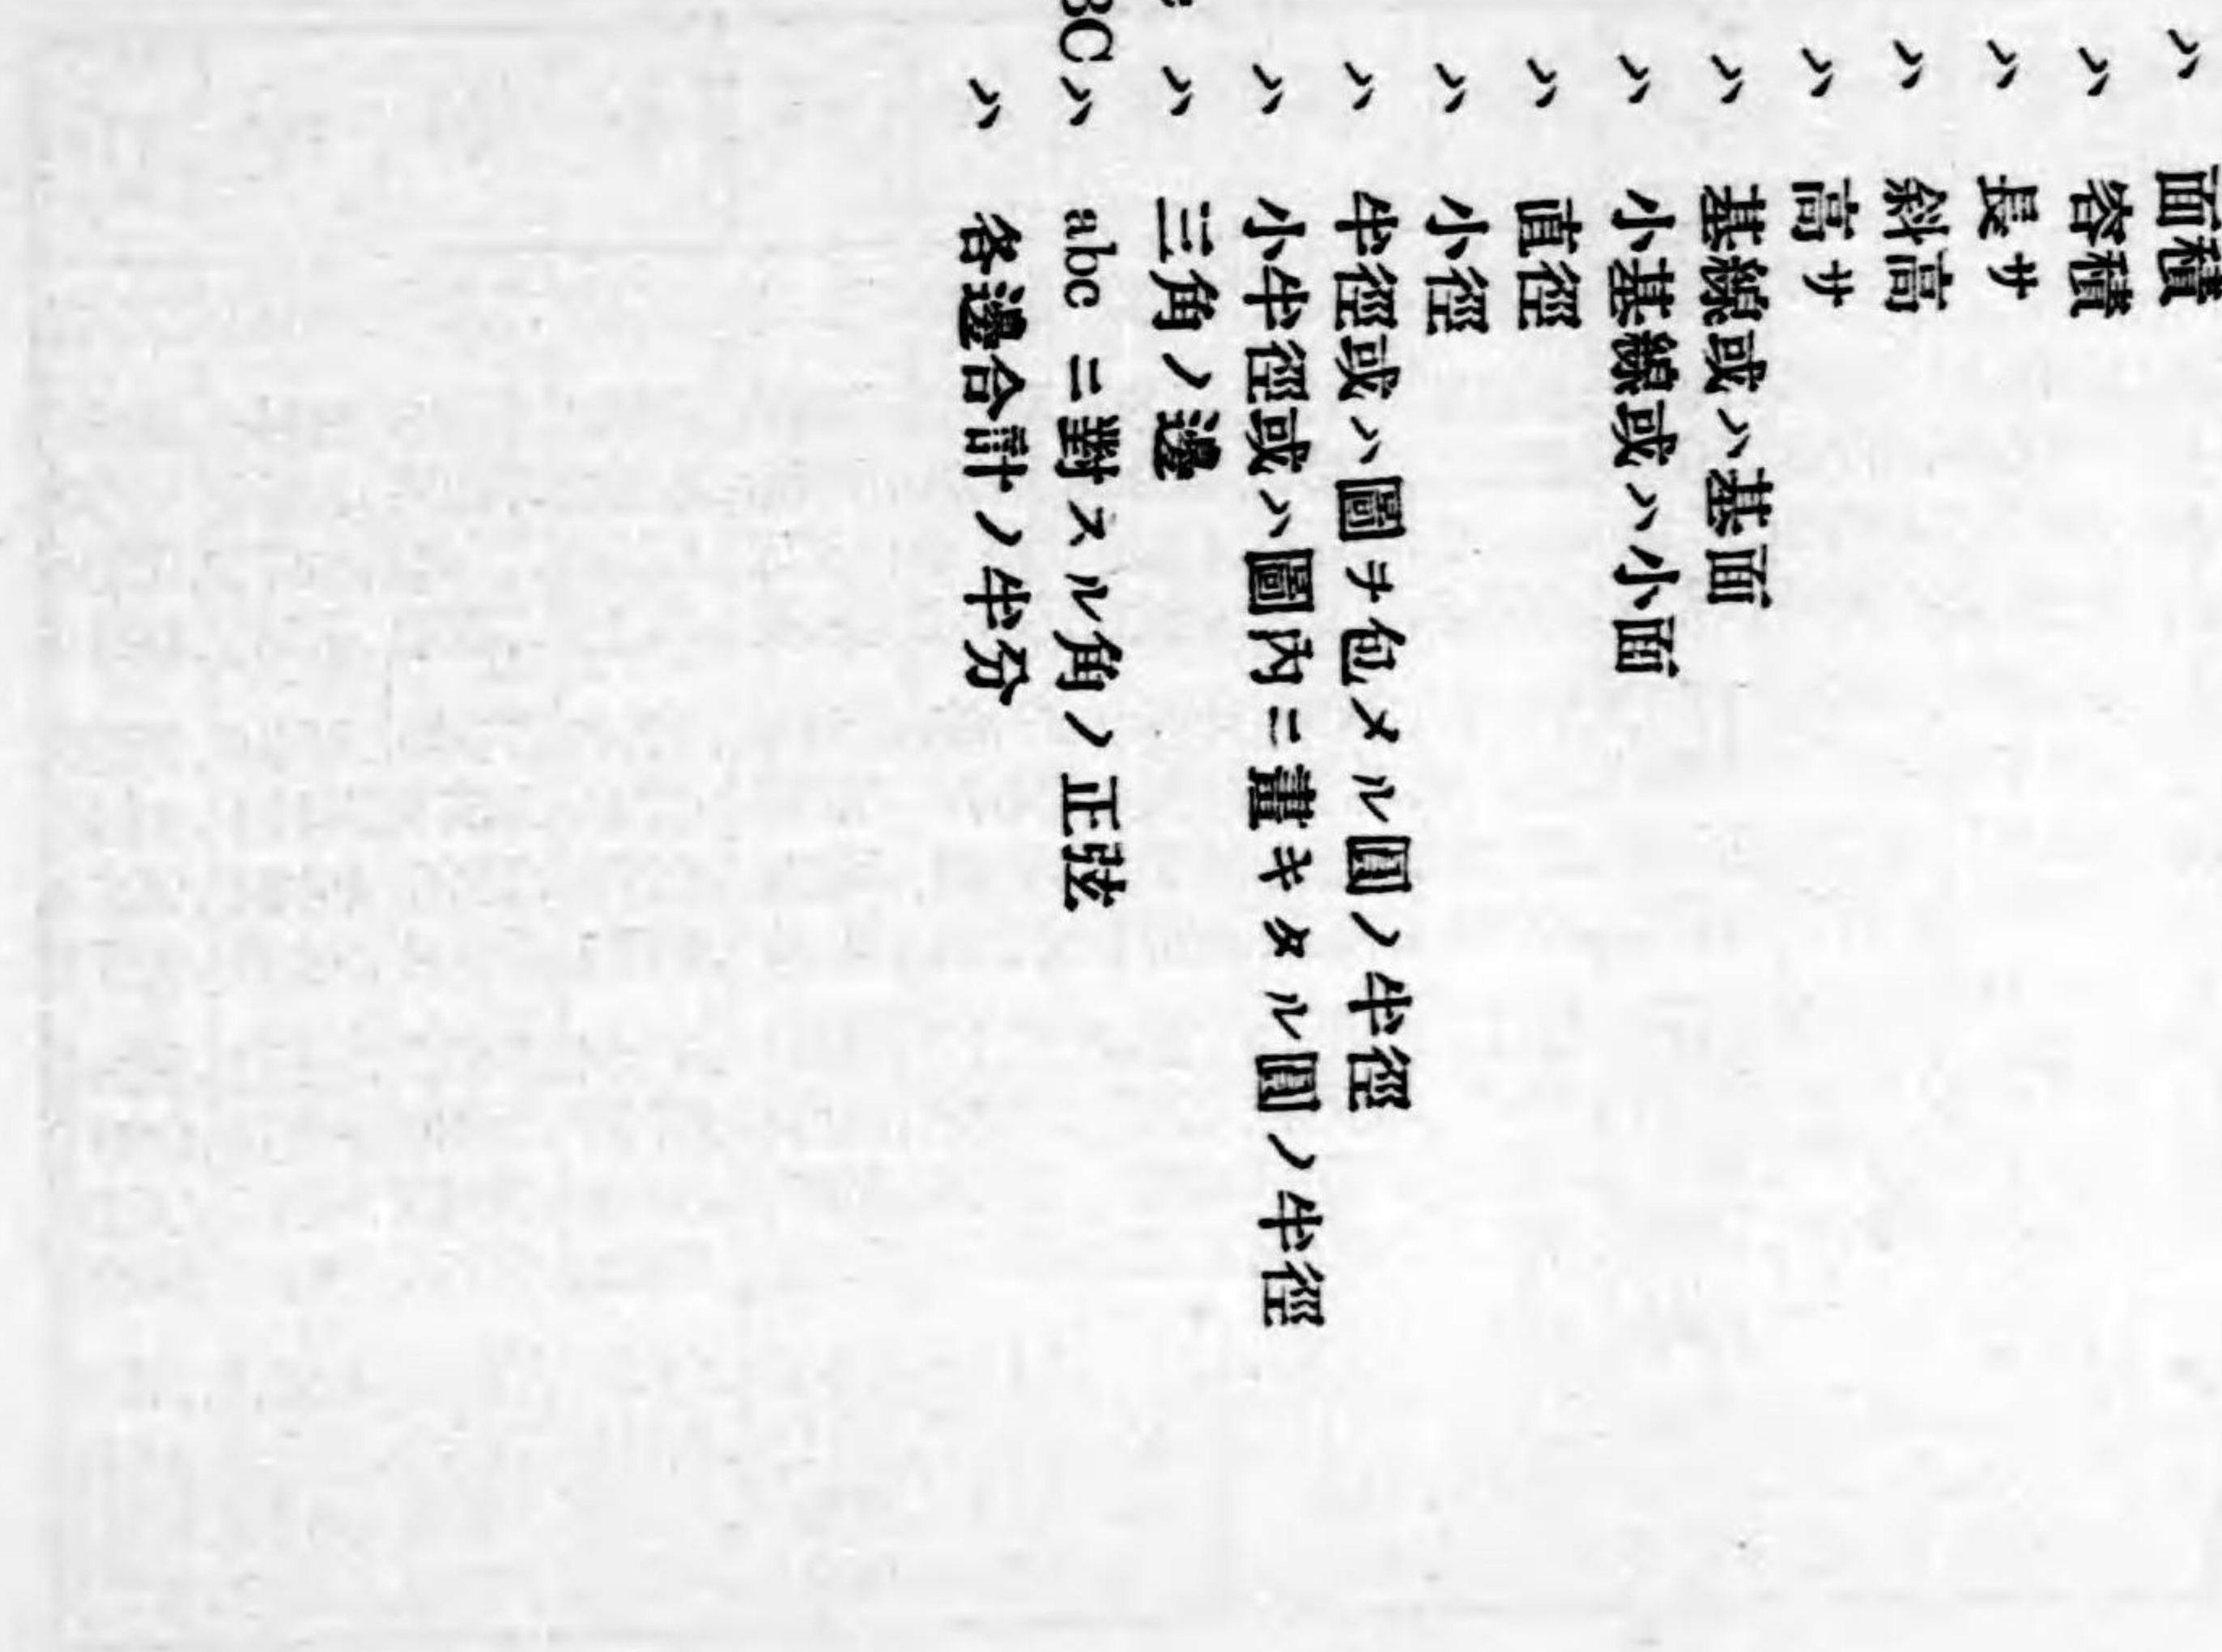 ハ 面積
ハ 容積
ハ 長サ
ハ 斜高
ハ 高サ
ハ 基線或ハ基面
ハ 小基線或ハ小面
ハ 直徑
ハ 小徑
ハ 半徑或ハ圖ヲ包メル圓ノ半徑
ハ 小半徑或ハ圖内ニ畫キタル圓ノ半徑
ハ 三角ノ邊
BC ハ abc ニ對スル角ノ正弦
ハ 各邊合計ノ半分